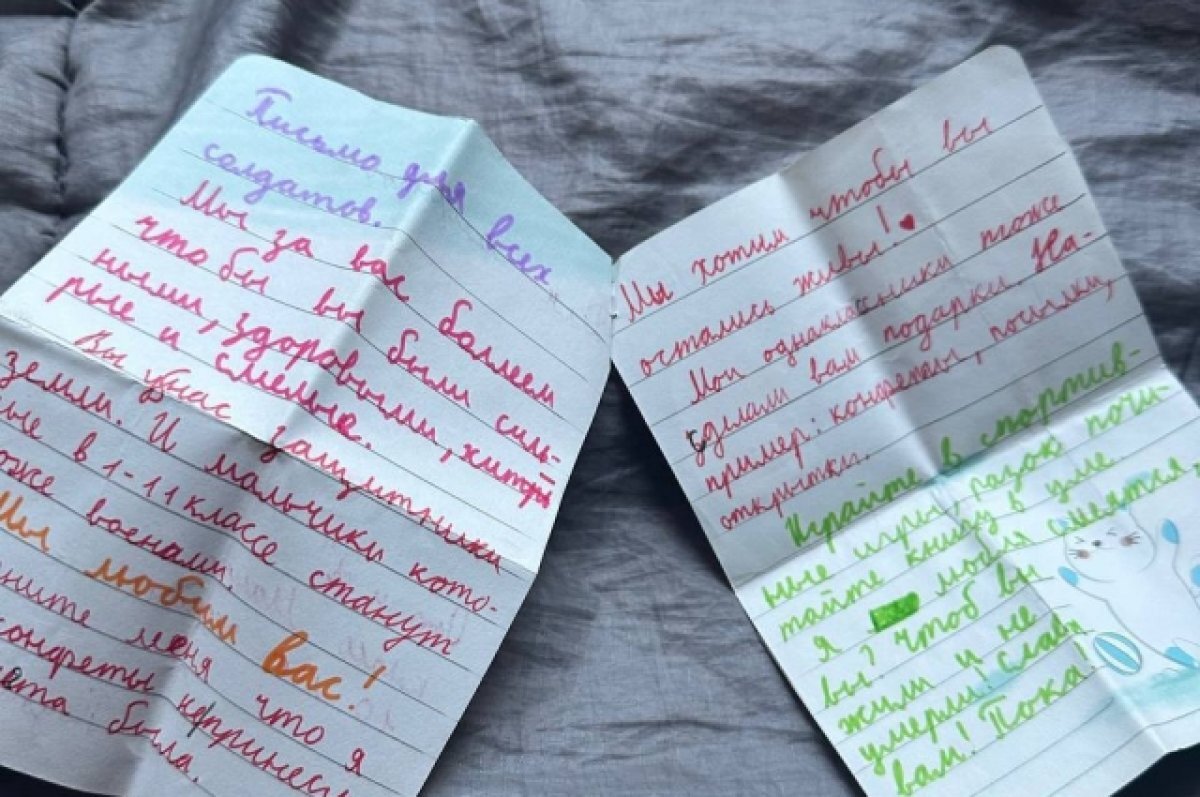 Письмо для всех
солдатов.
Мы за вас болеем
что бы вы были силь-
ными, здоровыми, хитры
рые и смелые.
Вы у нас защитники
земли. И мальчики кото-
ые в 1-11 классе станут
оже военами.
Мы любим вас!
ините меня что я
конфеты не принесл
ета была.
Мы хотим чтобы вы
остались живы!
Мои однаклассники тоже
сделали вам подарки. На-
пример: конфеты, посылки,
открытки.
Играйте в спортив-
ные игры, разок почи-
тайте книгу в уме.
я молюя смеятся,
вы, чтоб вы
жили и не
умерли! слава
вам! Пока!